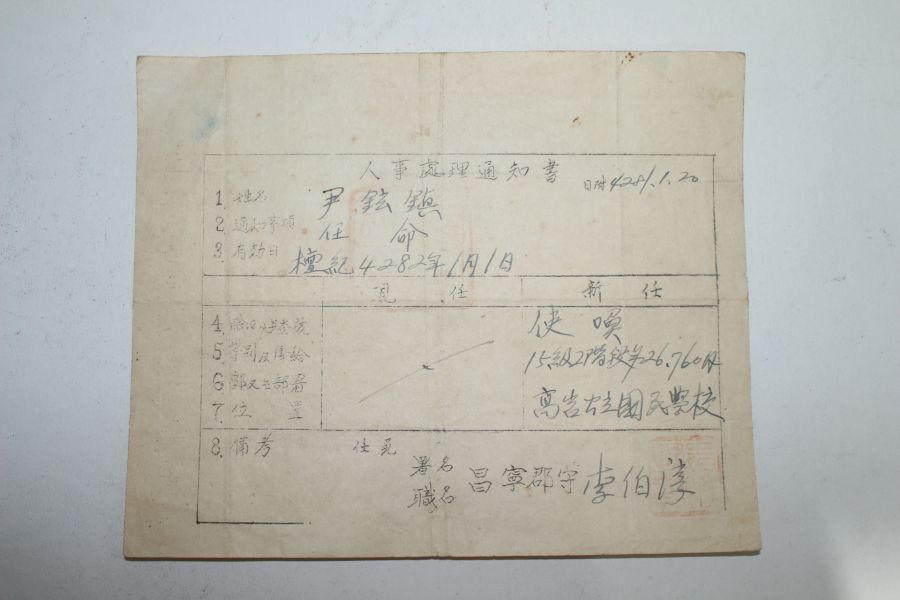 人事處理通知書
日附 4281.1.20
1. 姓名 尹鉉鎭
2. 通知事項 任命
3. 有効日 檀紀4282年1月1日
見任 新任
4. 使喚
5. 等別及俸給 15級2階段
6. 部又는部署 國民學校
7. 位置
8. 備考 任免
署名
職名 昌寧郡守 李伯淳